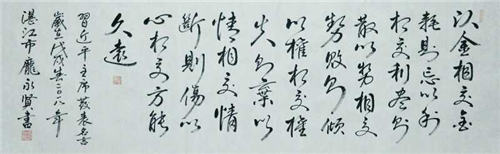 以金相交金
耗則忘以利
相交利盡則
散以勢相交
勢敗則傾
以權相交權
失則棄以
情相交情
斷則傷以
心相交方能
久遠
習近平主席發表名言
歲在戊戌年二〇一八年
湛江市龐永賢書